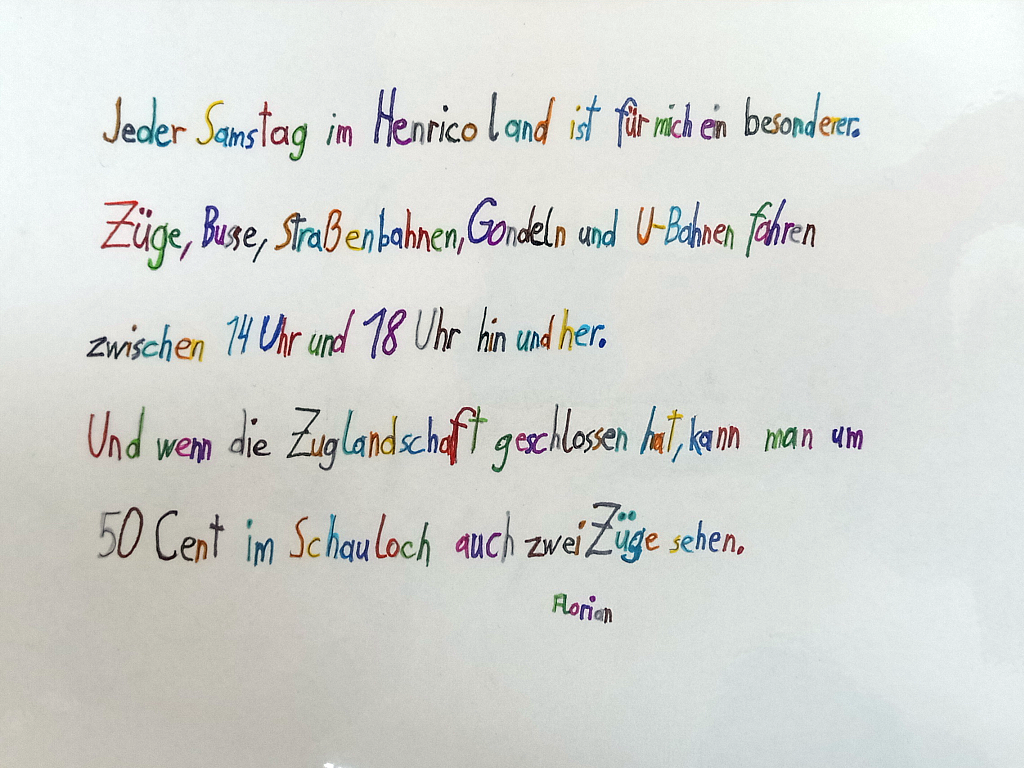 Jeder Samstag im Henricoland ist für mich ein besonderer.
Züge, Busse, Straßenbahnen, Gondeln und U-Bahnen fahren
zwischen 14 Uhr und 18 Uhr hin und her.
Und wenn die Zuglandschaft geschlossen hat, kann man um
50 Cent im Schauloch auch zwei Züge sehen.
Florian